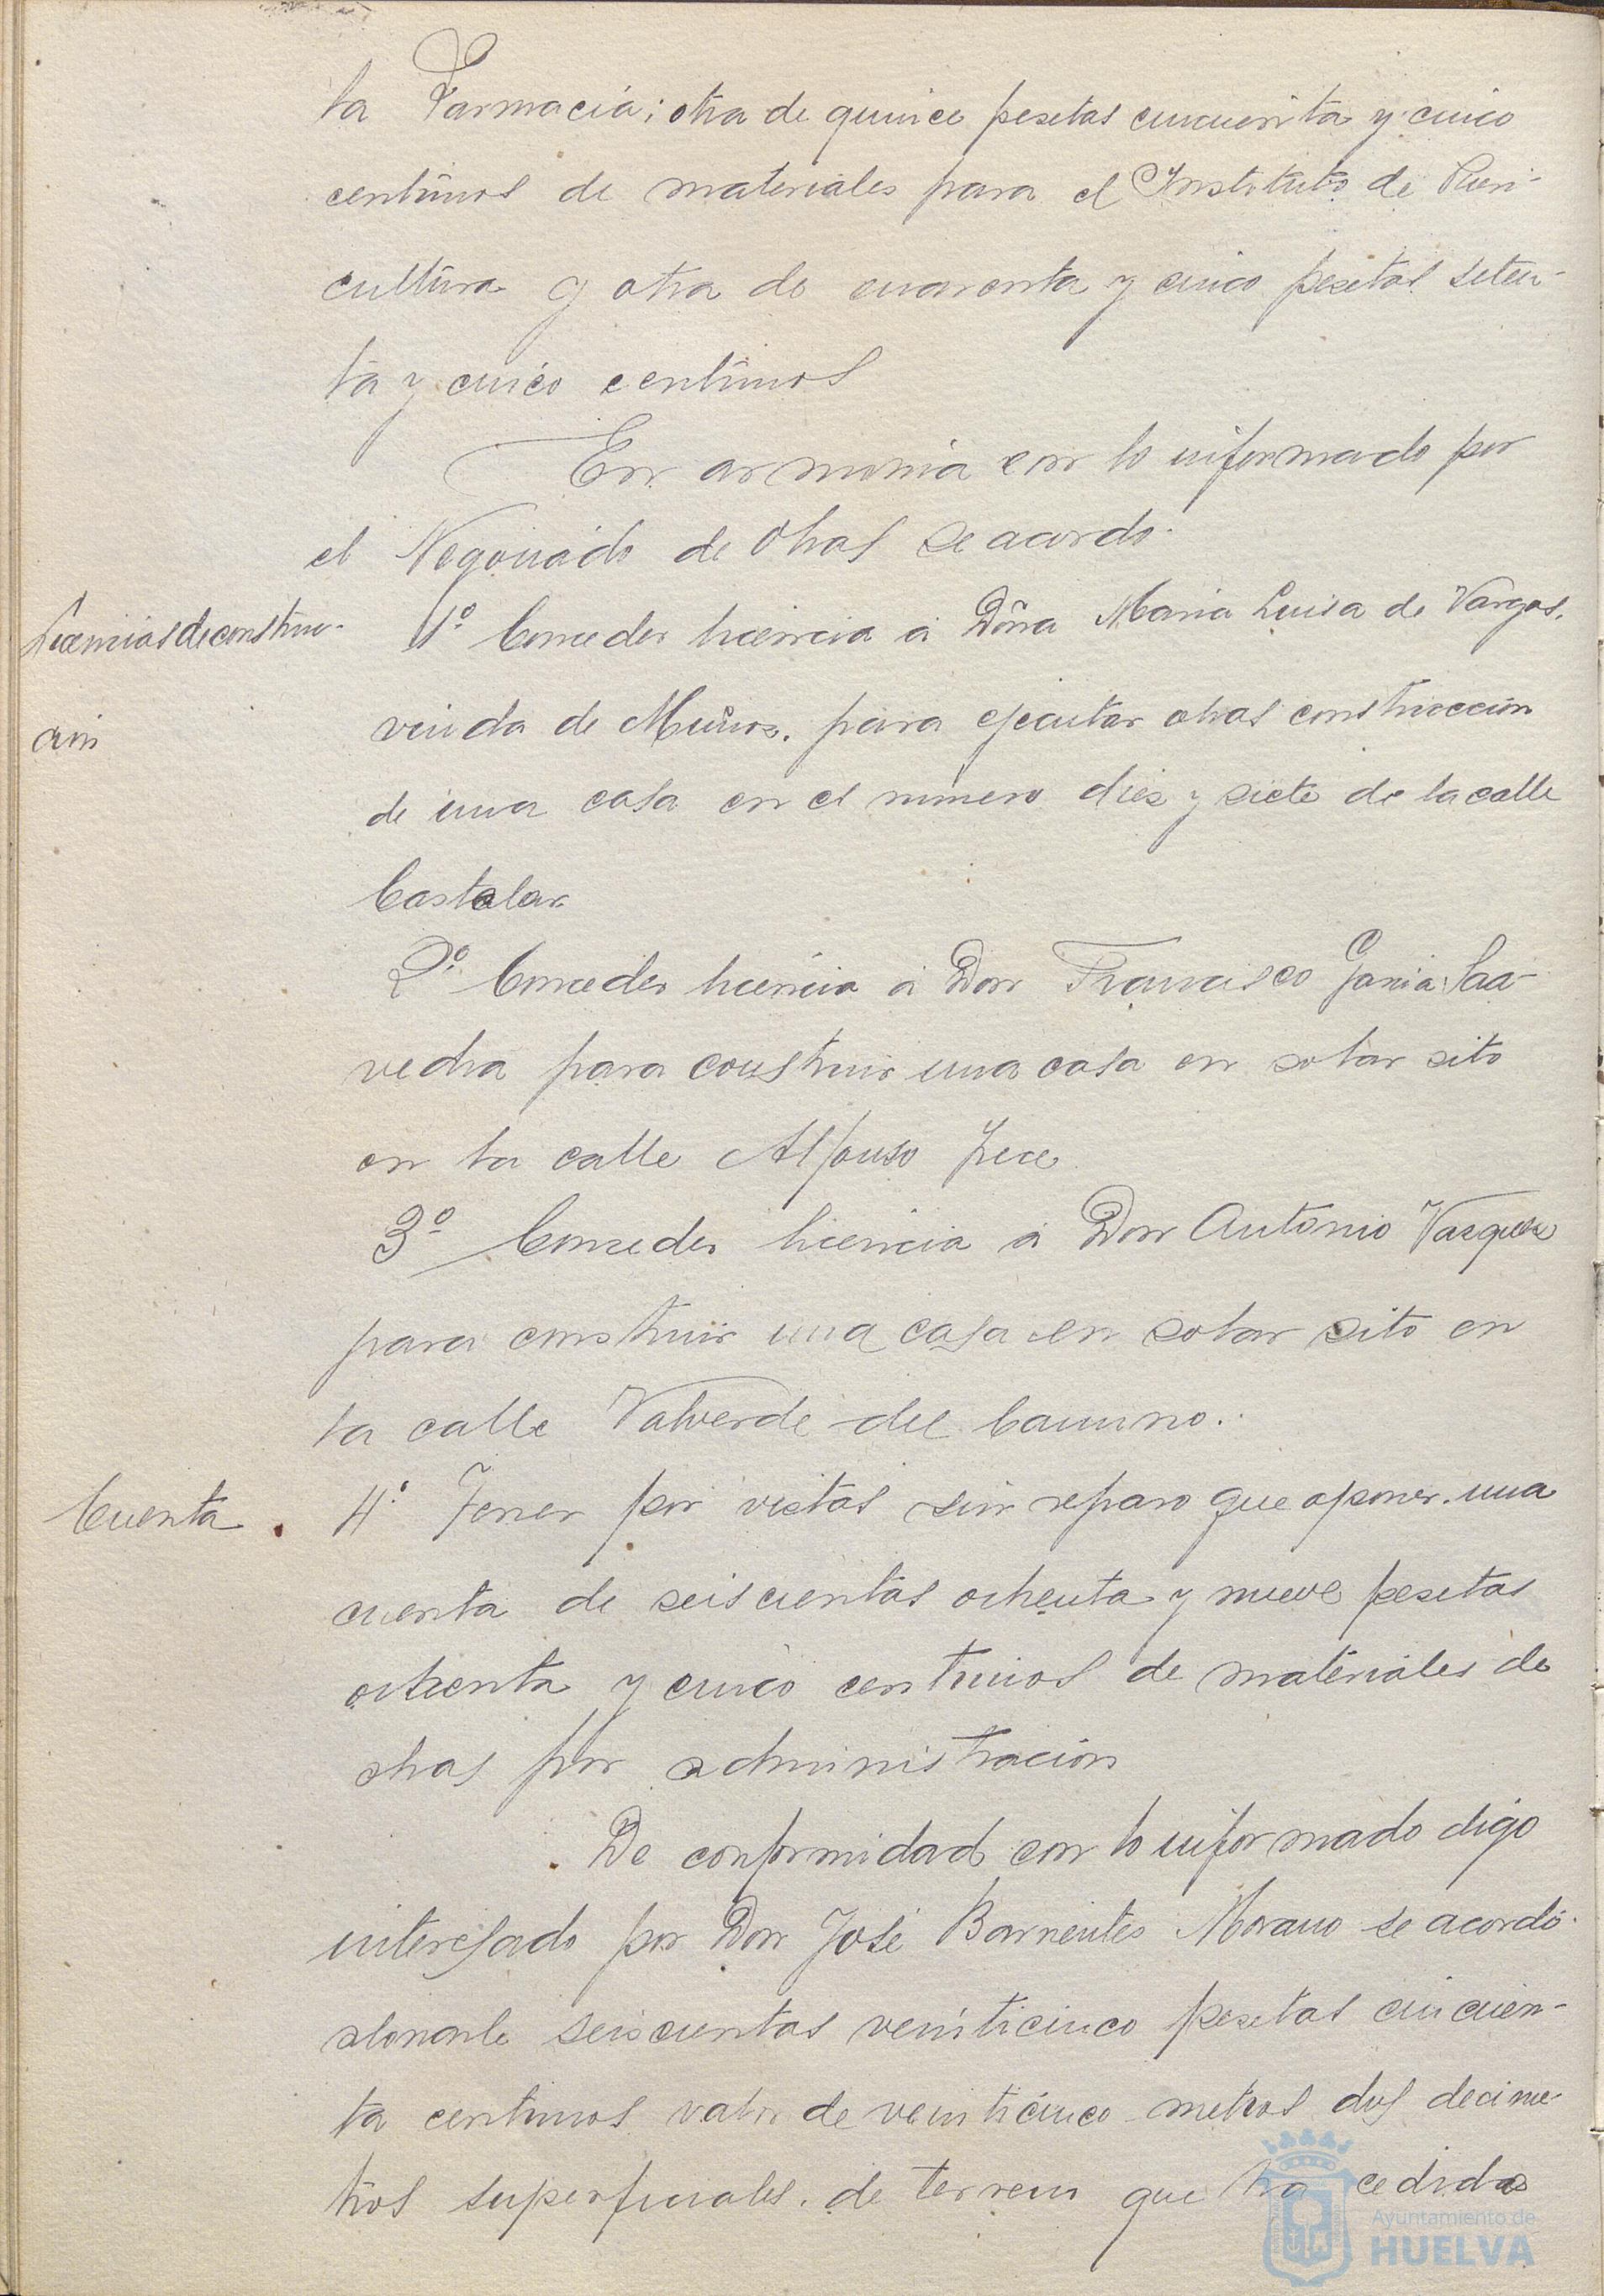 la Farmacia; otra de quince pesetas cincuenta y cinco
centimos de materiales para el Instituto de Pueri-
cultura y otra de cuarenta y cinco pesetas seten-
ta y cinco centimos
En armonia con lo informado por
el Negociado de Obras se acordo.
Licencias de construc-
ción
1º Conceder licencia a Doña Maria Luisa de Vargas,
viuda de Muñoz, para ejecutar obras construcción
de una casa en el numero diez y siete de la calle
Castelar
2º Conceder licencia a Don Francisco Garcia Saa-
vedra para construir una casa en solar sito
en la calle Alfonso Trece
3º Conceder licencia a Don Antonio Vazquez
para construir una casa en solar sito en
la calle Valverde del Camino.
Cuenta
4º Tener por vistas sin reparo que oponer una
cuenta de seiscientas ochenta y nueve pesetas
ochenta y cinco centimos de materiales de
obras por administracion
De conformidad con lo informado digo
interesado por Don José Barrientos Morano se acordó
abonarle seiscientas veinticinco pesetas cincuen-
ta centimos valor de veinticinco metros dos decime-
tros superficiales de terreno que ha cedido
Ayuntamiento de
HUELVA